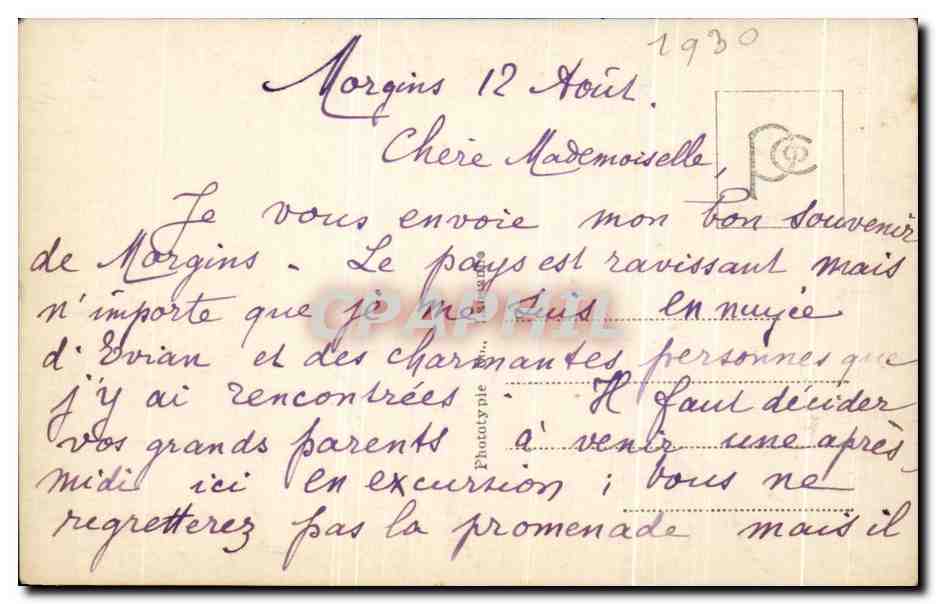 1930
Morgins 12 Août.
Chère Mademoiselle,
Je vous envoie mon bon souvenir
de Morgins - Le pays est ravissant mais
n'importe que je me suis ennuyée
d'Evian et des charmantes personnes que
j'y ai rencontrées - Il faut décider
vos grands parents à venir une après-
midi ici en excursion ; vous ne
regretterez pas la promenade mais il
Phototypie
CPAPHIL